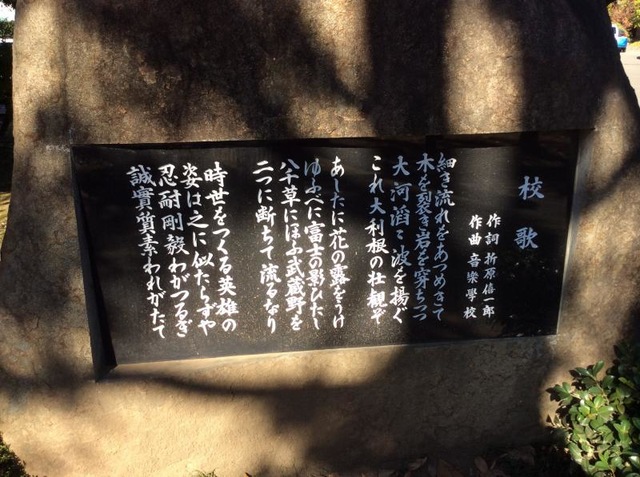 校歌
作詞 折原信一郎
作曲 音樂學校
細き流れをあつめきて
木を裂き岩を穿ちつつ
大河滔々波を揚ぐ
これ大利根の壮観ぞ
あしたに花の露をうけ
ゆふべに富士の影ひたし
八千草にほふ武蔵野を
二つに断ちて流るなり
時世をつくる英雄の
姿は之に似たらずや
忍耐剛毅わがつるぎ
誠實質素われがたて